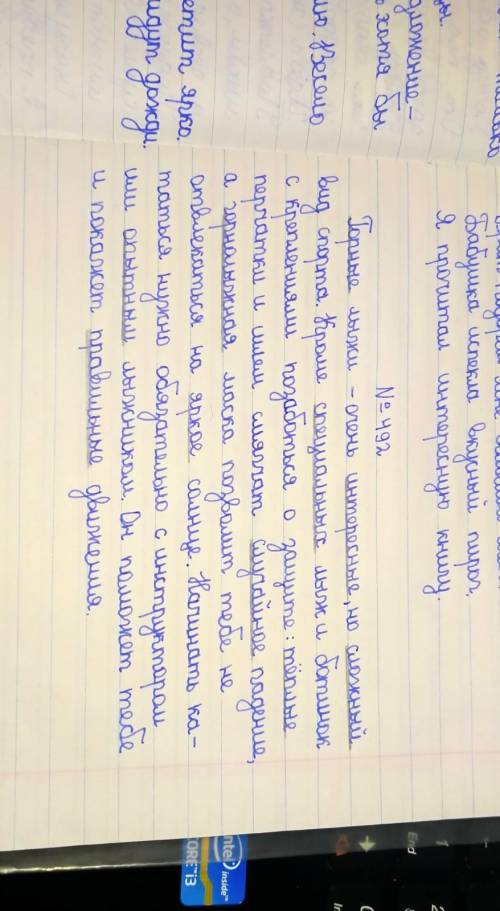 хотя бы
Весело
етит ярко.
идут дожди.
Бабушка испекла вкусный пирог.
Я прочитал интересную книгу.
№ 492
Горные лыжи - очень интересные, но сложный
вид спорта. Кроме специальных лыж и ботинок
с креплениями позаботься о защите: тёплые
перчатки и шлем смягчат случайное падение,
а горналыжная маска позволит тебе не
отвлекаться на яркое солнце. Начинать ка-
таться нужно обязательно с инструктором
или опытным лыжником. Он поможет тебе
и покажет правильные движения.
intel inside™
CORE™i3
End